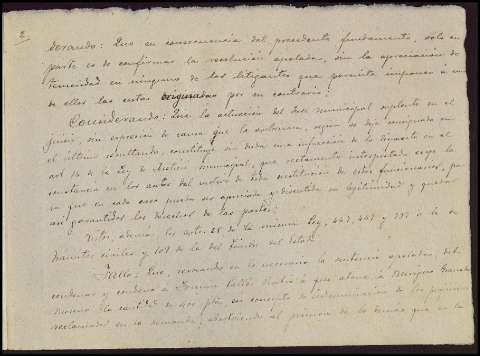 2
derando: Que en consecuencia del precedente fundamento, solo en
parte es de confirmar la resolución apelada, sin la apreciación de
temeridad en ninguno de los litigantes que permita imponer á uno
de ellos las costas originadas por su contrario:
Considerando: Que la actuación del Juez municipal suplente en el
juicio, sin expresión de causa que la autorizara, según se deja consignado en
el último resultando, constituye sin duda una infracción de lo dispuesto en el
art 14 de la Ley de Justicia municipal, que rectamente interpretado exige la
constancia en los autos del motivo de toda sustitución de estos funcionarios, pa
ra que en cada caso pueda ser apreciada y discutida su legitimidad y quedar
así garantidos los derechos de las partes:
Vistos, además, los arts. 28 de la misma Ley, y de la de
trámites civiles y 109 de la del Timbre del Estado.
Fallo: Que, revocando en lo necesario la sentencia apelada, debo
condenar y condeno á á que abone á
la cantd de pts, en concepto de indemnización de los perjuicios
reclamados en la demanda; absolviendo al primero de lo demás que en la